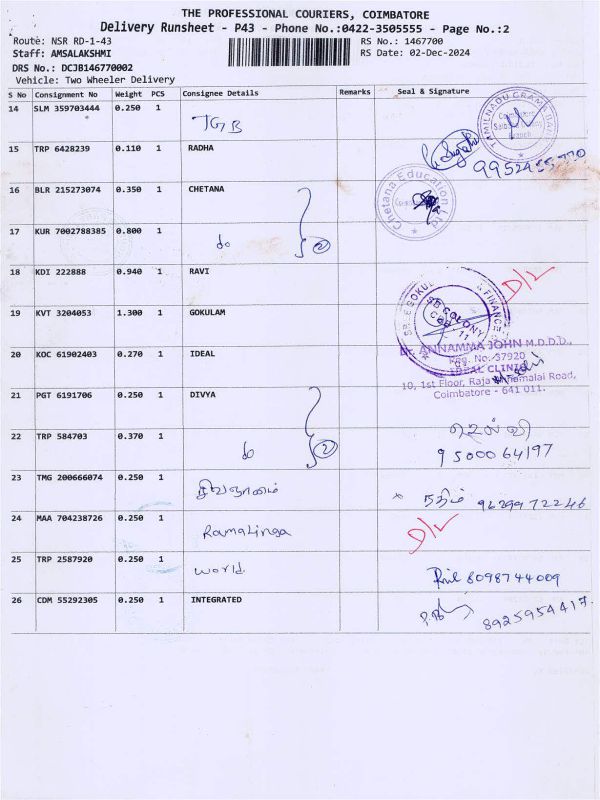 THE PROFESSIONAL COURIERS, COIMBATORE
Delivery Runsheet - P43 - Phone No.:0422-3505555 - Page No.:2
Route: NSR RD-1-43 RS No.: 1467700
Staff: AMSALAKSHMI RS Date: 02-Dec-2024
DRS No.: DCJB146770002
Vehicle: Two Wheeler Delivery
S No Consignment No Weight PCS Consignee Details Remarks Seal & Signature
14 SLM 359703444 0.250 1 TGB
TAMILNADU GRAMA BANK
Branch
15 TRP 6428239 0.110 1 RADHA
16 BLR 215273074 0.350 1 CHETANA
Chetana Education Ltd
17 KUR 7002788385 0.800 1 do 2
18 KDI 222888 0.940 1 RAVI D/L
19 KVT 3204053 1.300 1 GOKULAM
SB COLONY
CBE-11
20 KOC 61902403 0.270 1 IDEAL
Dr. ANNAMMA JOHN M.D.D.D.,
Reg. No. 37920
IDEAL CLINIC
10, 1st Floor, Raja Annamalai Road,
Coimbatore - 641 011.
21 PGT 6191706 0.250 1 DIVYA
22 TRP 584703 0.370 1 do 2 செல்வி
9500064197
23 TMG 200666074 0.250 1 சிவஞானம் 9629972246
24 MAA 704238726 0.250 1 Ramalinga D/L
25 TRP 2587920 0.250 1 World 8098744009
26 CDM 55292305 0.250 1 INTEGRATED 8925954417